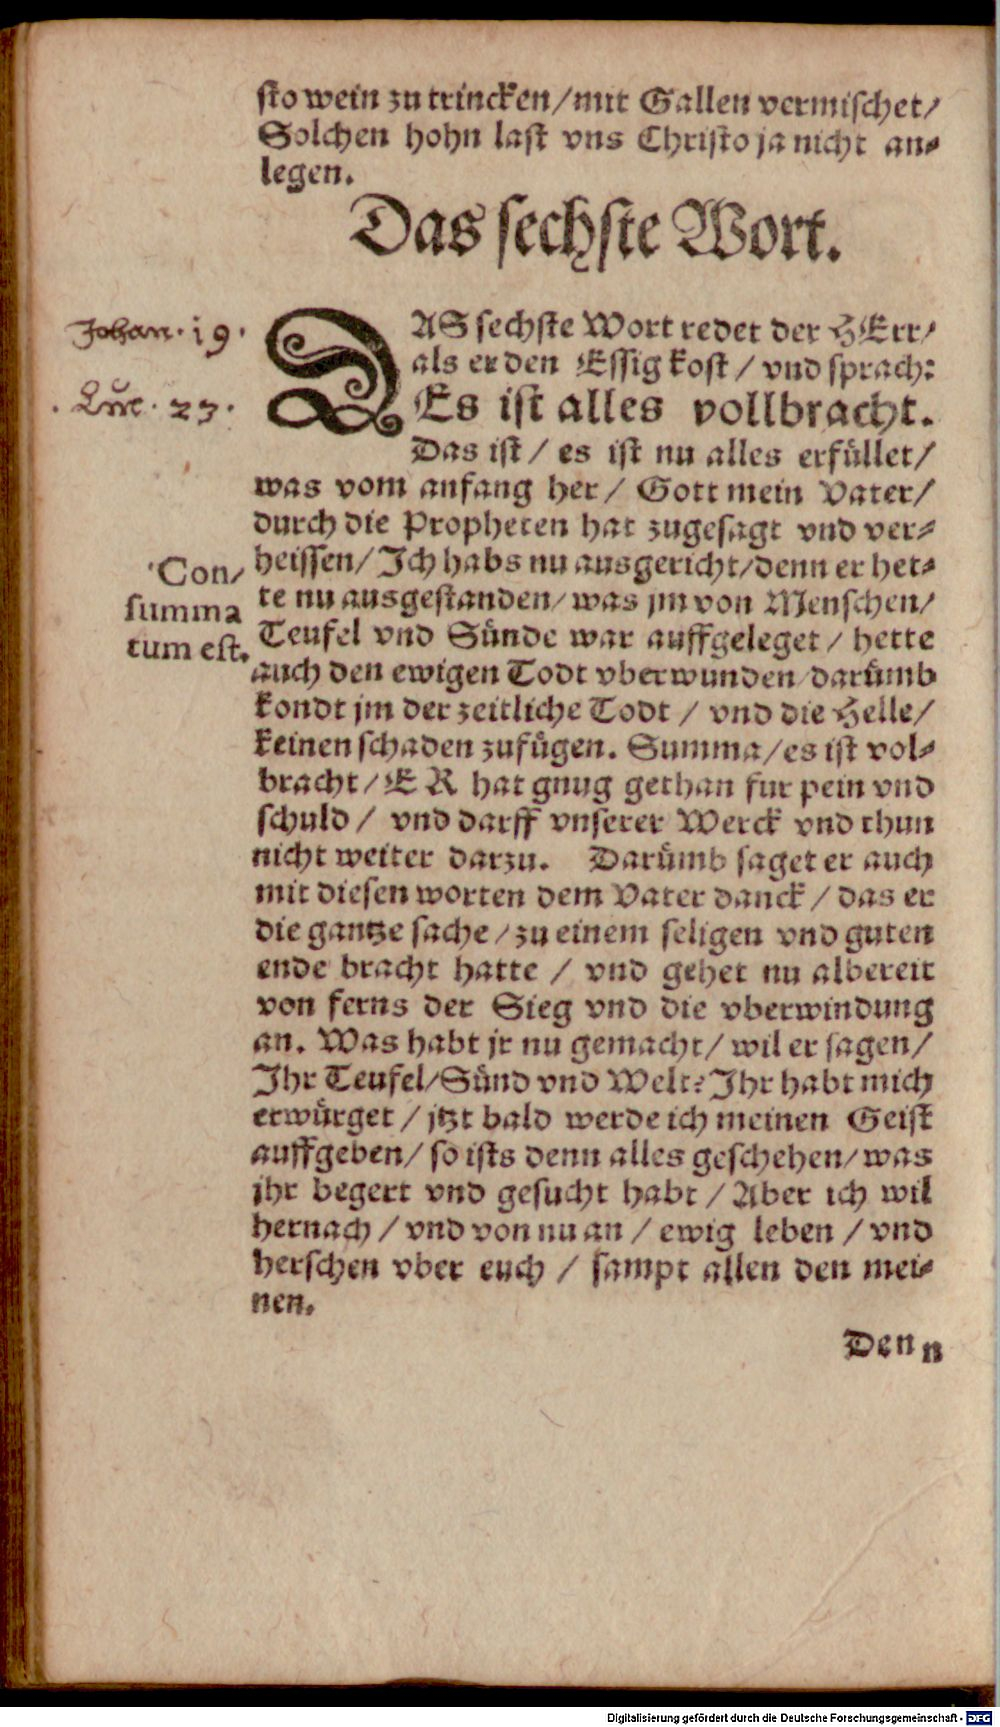 sto wein zu trincken/mit Gallen vermischet/
Solchen hohn last vns Christo ja nicht an-
legen.
Das sechste Wort.
Johan. 19.
Luc. 23.
DAS sechste Wort redet der HErr/
als er den Essig kost / vnd sprach:
Es ist alles vollbracht.
Das ist / es ist nu alles erfüllet/
was vom anfang her / Gott mein Vater/
durch die Propheten hat zugesagt vnd ver-
heissen/ Ich habs nu ausgericht/denn er het-
te nu ausgestanden/ was jm von Menschen/
Teufel vnd Sünde war auffgeleget / hette
auch den ewigen Todt vberwunden/darümb
kondt jm der zeitliche Todt / vnd die Helle/
keinen schaden zufügen. Summa/es ist vol-
bracht/ ER hat gnug gethan fur pein vnd
schuld / vnd darff vnserer Werck vnd thun
nicht weiter darzu. Darümb saget er auch
mit diesen worten dem Vater danck / das er
die gantze sache / zu einem seligen vnd guten
ende bracht hatte / vnd gehet nu albereit
von ferns der Sieg vnd die vberwindung
an. Was habt jr nu gemacht/ wil er sagen/
Ihr Teufel/Sünd vnd Welt? Ihr habt mich
erwürget / jtzt bald werde ich meinen Geist
auffgeben/ so ists denn alles geschehen/ was
jhr begert vnd gesucht habt / Aber ich wil
hernach / vnd von nu an / ewig leben / vnd
herschen vber euch / sampt allen den mei-
nen.
Con/
summa
tum est.
Denn
Digitalisierung gefördert durch die Deutsche Forschungsgemeinschaft - DFG